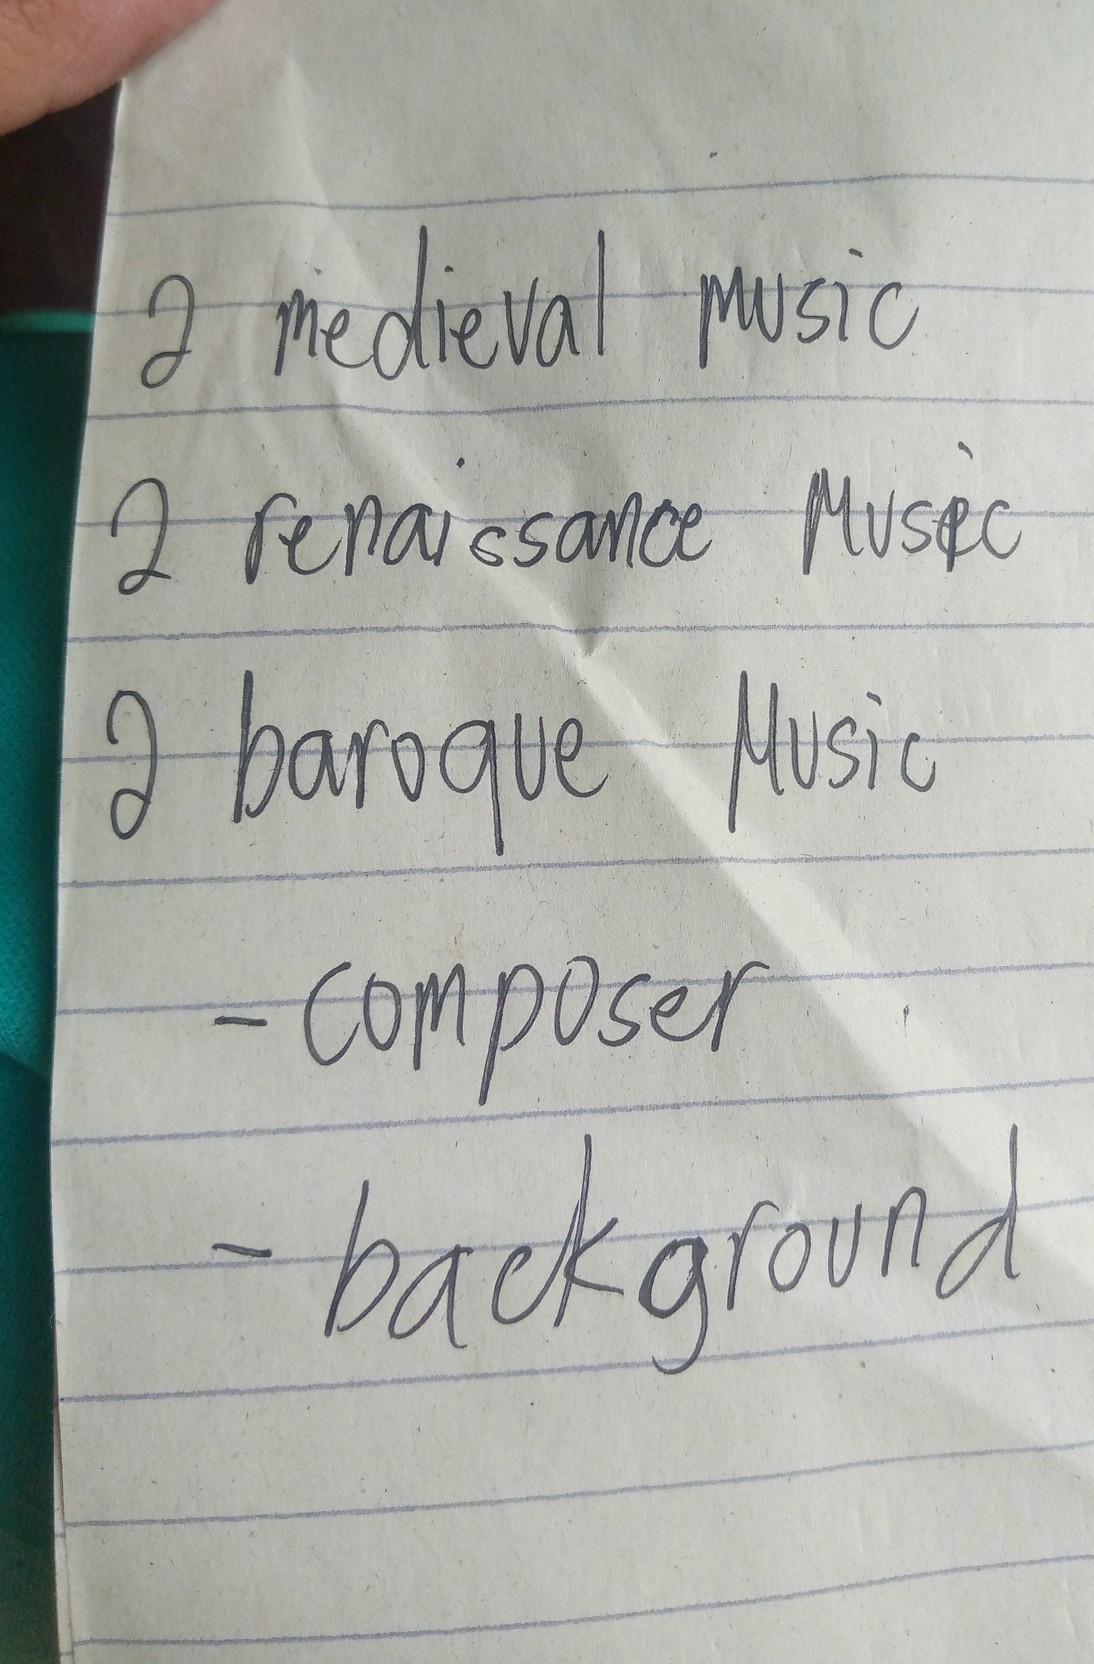 2 medieval music
2 renaissance Music
2 baroque Music
- composer
- background